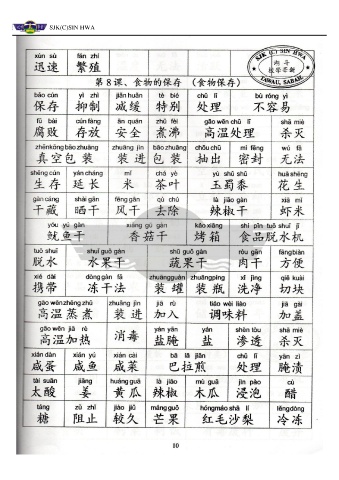 SJK(C)SIN HWA
xùn sù fán zhí
迅速 繁殖
SJK (C) SIN HWA
TAWAU, SABAH.
第8课、食物的保存 (食物保存)
bǎo cún yì zhì jiǎn huǎn tè bié chǔ lǐ bù róng yì
保存 抑制 减缓 特别 处理 不容易
fǔ bài cún fàng ān quán zhǔ fèi gāo wēn chǔ lǐ shā miè
腐败 存放 安全 煮沸 高温处理 杀灭
zhēnkōngbāozhuāng zhuāng jìn bāo zhuāng chōu chū mì fēng wú fǎ
真空包装 装进包装 抽出 密封 无法
shēng cún yán cháng mǐ chá yè yù shǔ shǔ huā shēng
生存 延长 米 茶叶 玉蜀黍 花生
gān cáng shài gān fēng gān qù chú là jiāo gān xiā mǐ
干藏 晒干 风干 去除 辣椒干 虾米
yóu yú gān xiāng gū gān kǎo xiāng shí pǐn tuō shuǐ jī
鱿鱼干 香菇干 烤箱 食品脱水机
tuō shuǐ shuǐ guǒ gān shū guǒ gān ròu gān fāng biàn
脱水 水果干 蔬果干 肉干 方便
xié dài dòng gān fǎ zhuāngguàn zhuāngpíng xǐ jìng qiē kuài
携带 冻干法 装罐 装瓶 洗净 切块
gāo wēn zhēng zhǔ zhuāng jìn jiā rù tiáo wèi liào jiā gài
高温蒸煮 装进 加入 调味料 加盖
gāo wēn jiā rè yán yān yán shèn tòu shā miè
高温加热 消毒 盐腌 盐 渗透 杀灭
xián dàn xián yú xián cài bā lā jiān chǔ lǐ yān zì
咸蛋 咸鱼 咸菜 巴拉煎 处理 腌渍
tài suān jiāng huáng guā là jiāo mù guā jìn pào cù
太酸 姜 黄瓜 辣椒 木瓜 浸泡 醋
táng zǔ zhǐ jiào jiǔ máng guǒ hóngmáo shā lí lěngdòng
糖 阻止 较久 芒果 红毛沙梨 冷冻
10